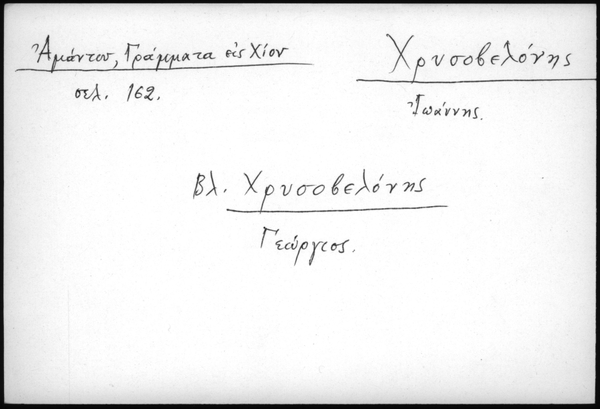 Ἀμάντου, Γράμματα εἰς Χίον
σελ. 162.
Χρυσοβελόνης
Ἰωάννης.
Βλ. Χρυσοβελόνης
Γεώργιος.